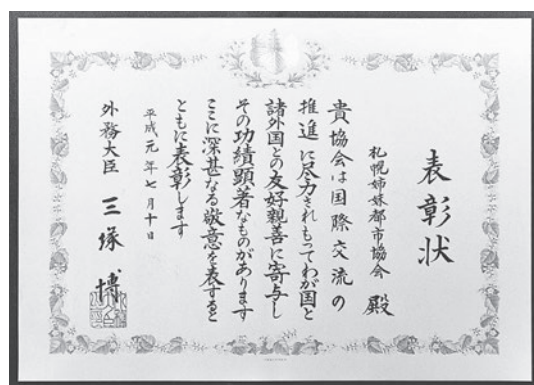 表彰状
札幌姉妹都市協会 殿
貴協会は国際交流の
推進に尽力されもってわが国と
諸外国との友好親善に寄与し
その功績顕著なものがあります
ここに深甚なる敬意を表すると
ともに表彰します
平成元年七月十日
外務大臣 三塚 博